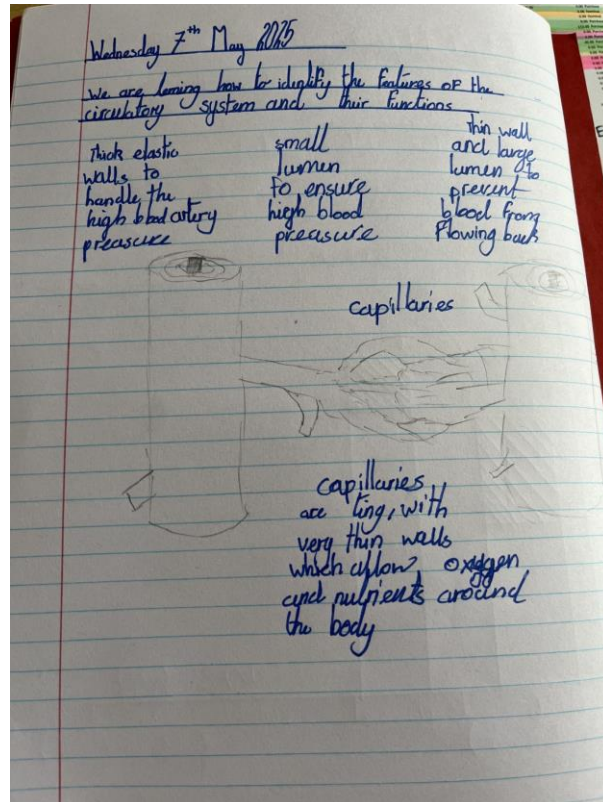 Wednesday 7th May 2025
We are lerning how to identify the features of the
circulatory system and their functions
Thick elastic
walls to
handle the
high blood artery
preasure
small
lumen
to ensure
high blood
preasure
thin wall
and large
lumen to
prevent
blood from
flowing back
capillaries
capillaries
are ting, with
very thin walls
which allow oxygen
and nutrients around
the body